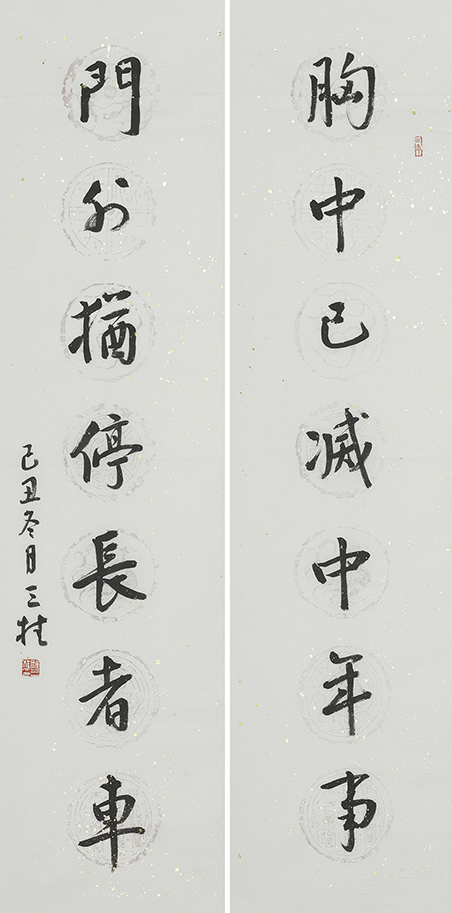 胸中已滅中年事
門外猶停長者車
己丑冬月三桂